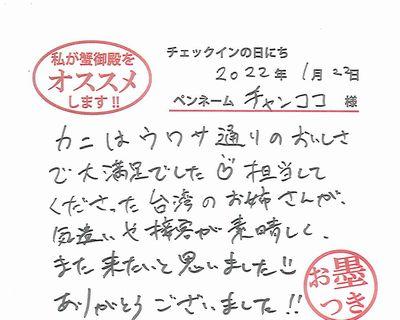 私が蟹御殿を
オススメ
します!!
チェックインの日にち
2022年 1月 22日
ペンネーム チャンココ 様
カニはウワサ通りのおいしさ
で大満足でした 担当して
くださった台湾のお姉さんが、
気遣いや接客が素晴しく、
また来たいと思いました
ありがとうございました!!
お墨
つき